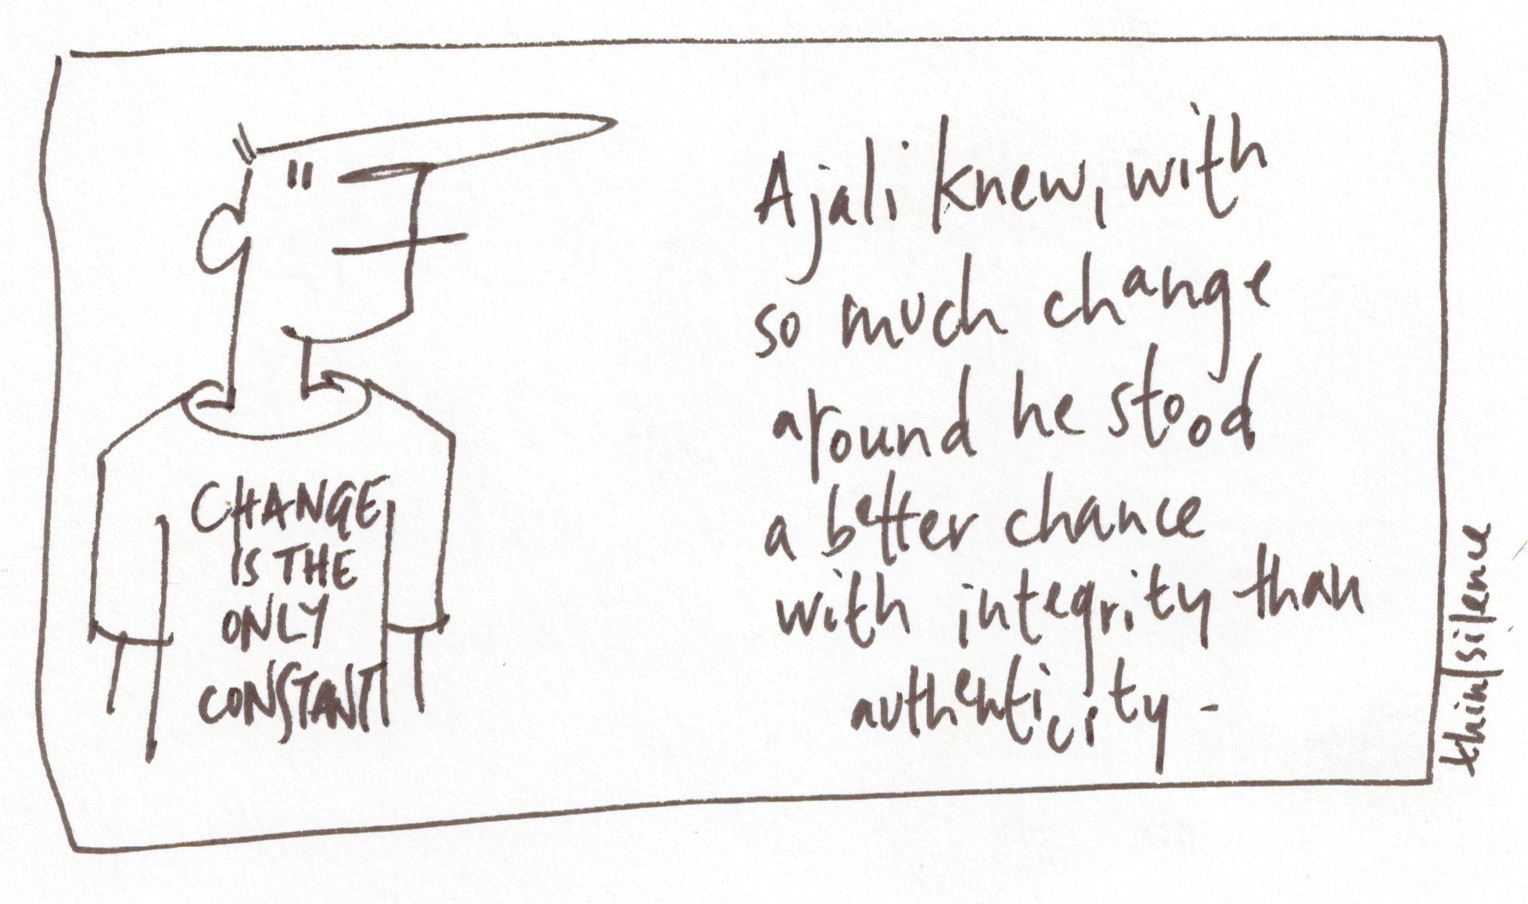 Ajali knew, with
so much change
around he stood
a better chance
with integrity than
authenticity -
CHANGE
IS THE
ONLY
CONSTANT
thin|silence